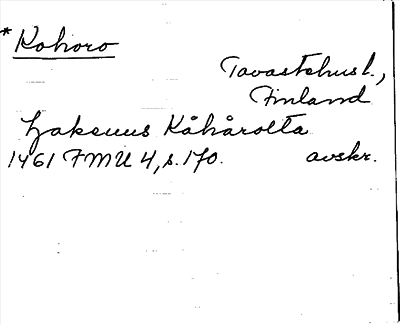 *Kohoro
Tavastehus l.,
Finland
Kåhårolta
1461 FMU 4, s. 170. avskr.